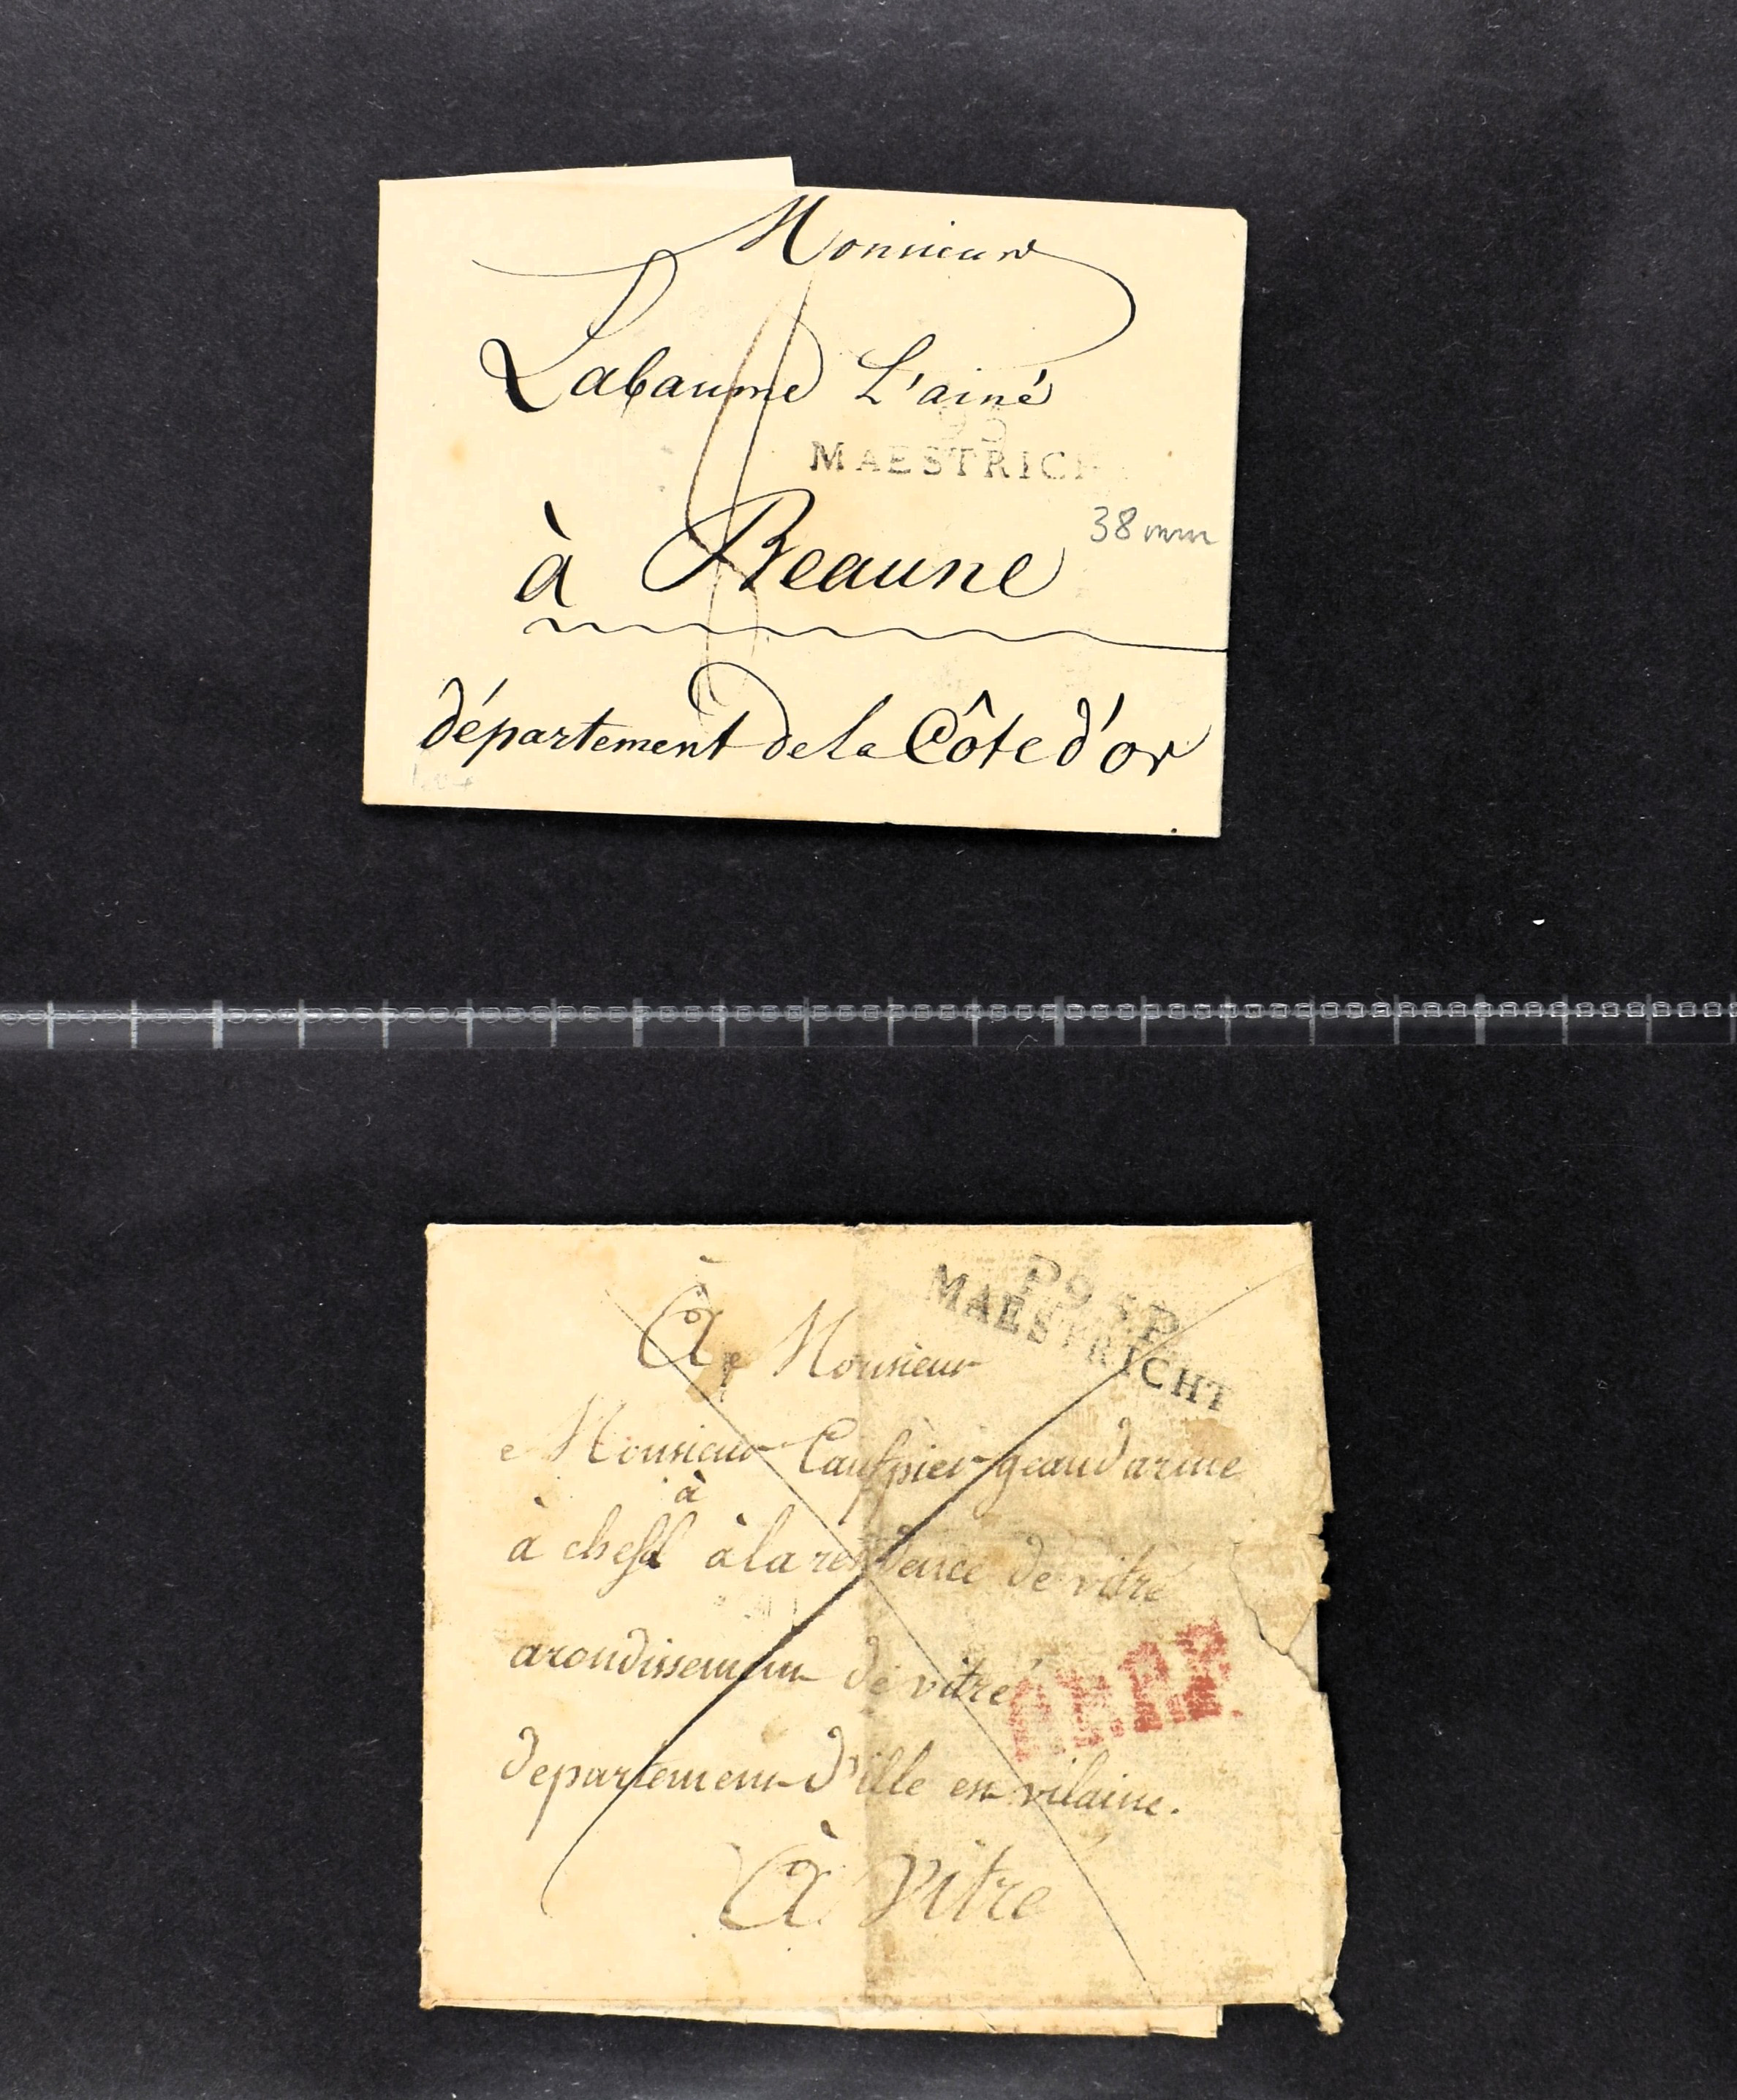 Monsieur
Labaume L'ainé
95
MAESTRICH
38 mm
à Beaune
département de la Côte d'or
P95P
MAESTRICHT
À Monsieur
Monsieur geandarme
à
à la residence de vitré
arondissement de vitré
departement d'ille en vilaine.
À vitre